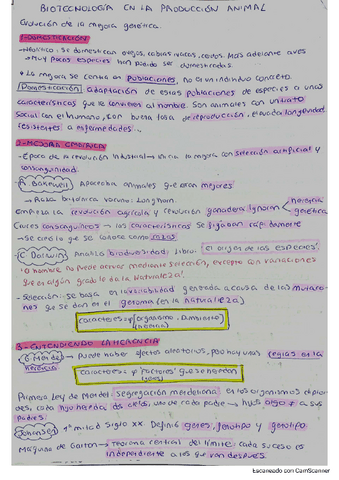 BIOTECNOLOGÍA EN LA PRODUCCIÓN ANIMAL
Evolución de la mejora genética.
1-DOMESTICACIÓN
→Neolítico: se domestican ovejas, cabras, vacas, cerdos. Más adelante aves
→Muy pocas especies han podido ser domesticadas.
* La mejora se centra en poblaciones, no en un individuo concreto.
Domesticación adaptación de estas poblaciones de especies a unas
características que le convienen al hombre. Son animales con un trato
social con el humano, con buena tasa de reproducción, elevada longevidad
resistentes a enfermedades...
2-MEJORA EMPÍRICA
-Época de la revolución industrial → inicia la mejora con selección artificial y
consanguinidad.
R. Bakewell Apareaba animales que eran mejores
→Raza británica vacuno: Longhorn.
Empieza la revolución agrícola y revolución ganadera ignoran herencia
genética
Cruces consanguíneos → las características se fijaban rápidamente
→Se creó lo que se conoce como razas
C. Darwin Analiza biodiversidad; libro: 'El origen de las especies'.
'O hombre no puede actuar mediante selección, excepto con variaciones
que en algún grado le da la Naturaleza'.
-Selección se basa en la variabilidad generada a causa de las mutacio-
nes que se dan en el genoma (en la Naturaleza)
Caracteres = f (organismo, ambiente)
(herencia)
3- ENTENDIENDO LA HERENCIA
G. Mendel Puede haber efectos aleatorios, pero hay unas reglas en la
herencia.
Caracteres = f 'factores' que se heredan
(genes)
Primera Ley de Mendel: segregación mendeliana en los organismos diploi-
des, cada hijo hereda dos alelos, uno de cada padre → hijos a sus
padres.
Johansen 1ª mitad siglo XX. Definió genes, fenotipo y genotipo
Máquina de Galton → Teorema central del límite cada suceso es
independiente a los que van después.
Escaneado con CamScanner